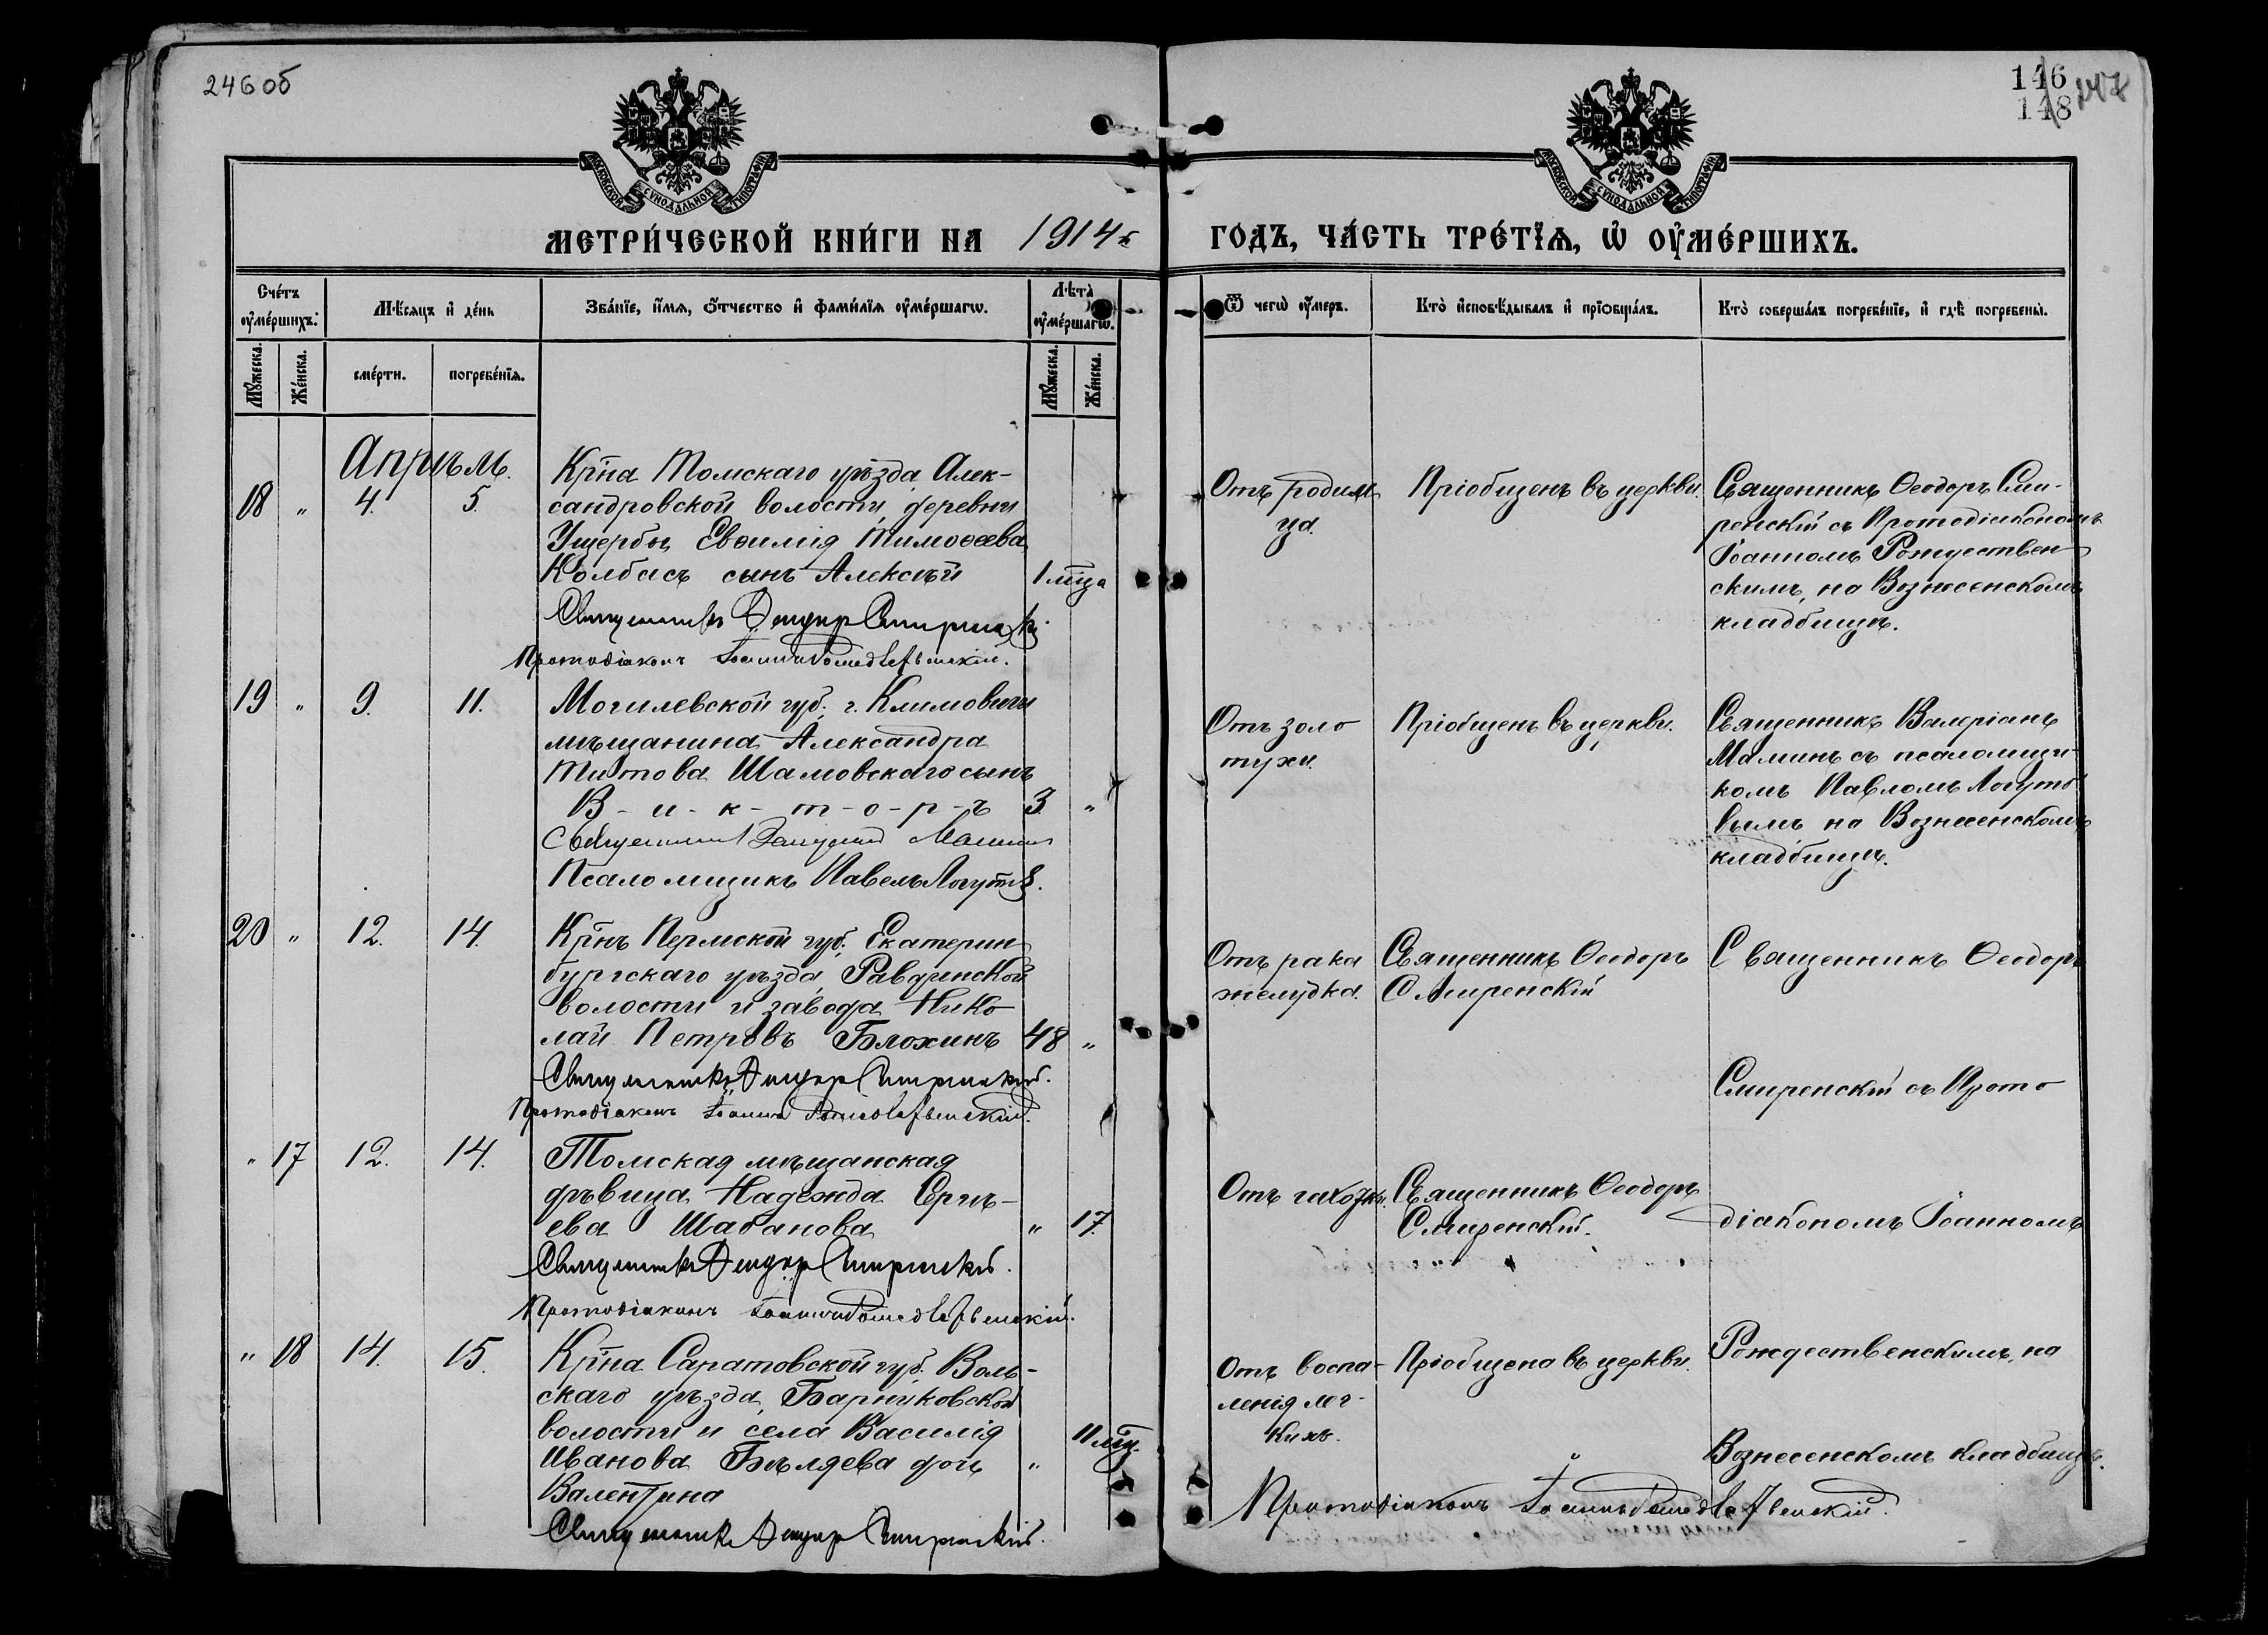 246 об
146
148
147
МОСКОВСКОЙ СУНОДАЛЬНОЙ ТИПОГРАФІИ
МОСКОВСКОЙ СУНОДАЛЬНОЙ ТИПОГРАФІИ
МЕТРИ́ЧЕСКОЙ КНИ́ГИ НА 1914 г.
ГОДЪ, ЧА́СТЬ ТРЕ́ТЇѦ, Ѡ҆ ОУ҆МЕ́РШИХЪ.
Сче́тъ оу҆ме́ршихъ:
Мѣ́сѧцъ и҆ де́нь
Зва́нїе, и҆́мѧ, ѻ҆́тчество и҆ фами́лїѧ оу҆ме́ршагѡ.
Лѣта̀ оу҆ме́ршагѡ.
Ѿ чегѡ̀ оу҆́меръ.
Кто̀ и҆сповѣ́дывалъ и҆ прїѡбща́лъ.
Кто̀ соверша́лъ погребе́нїе, и҆ гдѣ̀ погребены̀.
Мꙋ́жеска.
Же́нска.
сме́рти.
погребе́нїѧ.
Мꙋ́жеска.
Же́нска.
Апрѣль.
18 " 4. 5.
Кр̃на Томскаго уѣзда Алек-
сандровской волости, деревни
Ущербы, Евѳимія Тимоѳеева
Колбасъ сынъ Алексѣй 1 мц̃а
Священникъ Ѳеодоръ Смиренскій
Протодіаконъ Іоаннъ Рождественскій.
Отъ родим
ца.
Пріобщенъ въ церкви.
Священникъ Ѳеодоръ Сми-
ренскій съ Протодіакономъ
Іоанномъ Рождествен-
скимъ, на Вознесенскомъ
кладбищѣ.
19 " 9. 11.
Могилевской губ. г. Климовичи
мѣщанина Александра
Титова Шамовскаго сынъ
В-и-к-т-о-р-ъ 3. "
Священникъ Валеріанъ Маминъ
Псаломщикъ Павелъ Логутовъ.
Отъ золо
тухи.
Пріобщенъ въ церкви.
Священникъ Валеріанъ
Маминъ съ псаломщи-
комъ Павломъ Логуто
вымъ на Вознесенскомъ
кладбищѣ.
20 " 12. 14.
Кр̃нъ Пермской губ. Екатерин
бургскаго уѣзда, Равдинской
волости и завода Нико
лай Петровъ Блохинъ 48 "
Священникъ Ѳеодоръ Смиренскій.
Протодіаконъ Іоаннъ Рождественскій.
Отъ рака
желудка.
Священникъ Ѳеодоръ
Смиренскій
Священникъ Ѳеодоръ
Смиренскій съ Прото
" 17 12. 14.
Томская мѣщанская
дѣвица Надежда Сергѣ-
ева Шабанова " 17.
Священникъ Ѳеодоръ Смиренскій.
Протодіаконъ Іоаннъ Рождественскій.
Отъ чахотки.
Священникъ Ѳеодоръ
Смиренскій.
діакономъ Іоанномъ
" 18 14. 15.
Кр̃на Саратовской губ. Воль-
скаго уѣзда, Барнуковской
волости и села Василія
Иванова Бѣляева дочь " 11 мц̃.
Валентина
Священникъ Ѳеодоръ Смиренскій.
Отъ воспа-
ленія лег-
кихъ.
Пріобщена въ церкви.
Рождественскимъ, на
Вознесенскомъ кладбищѣ.
Протодіаконъ Іоаннъ Рождественскій.